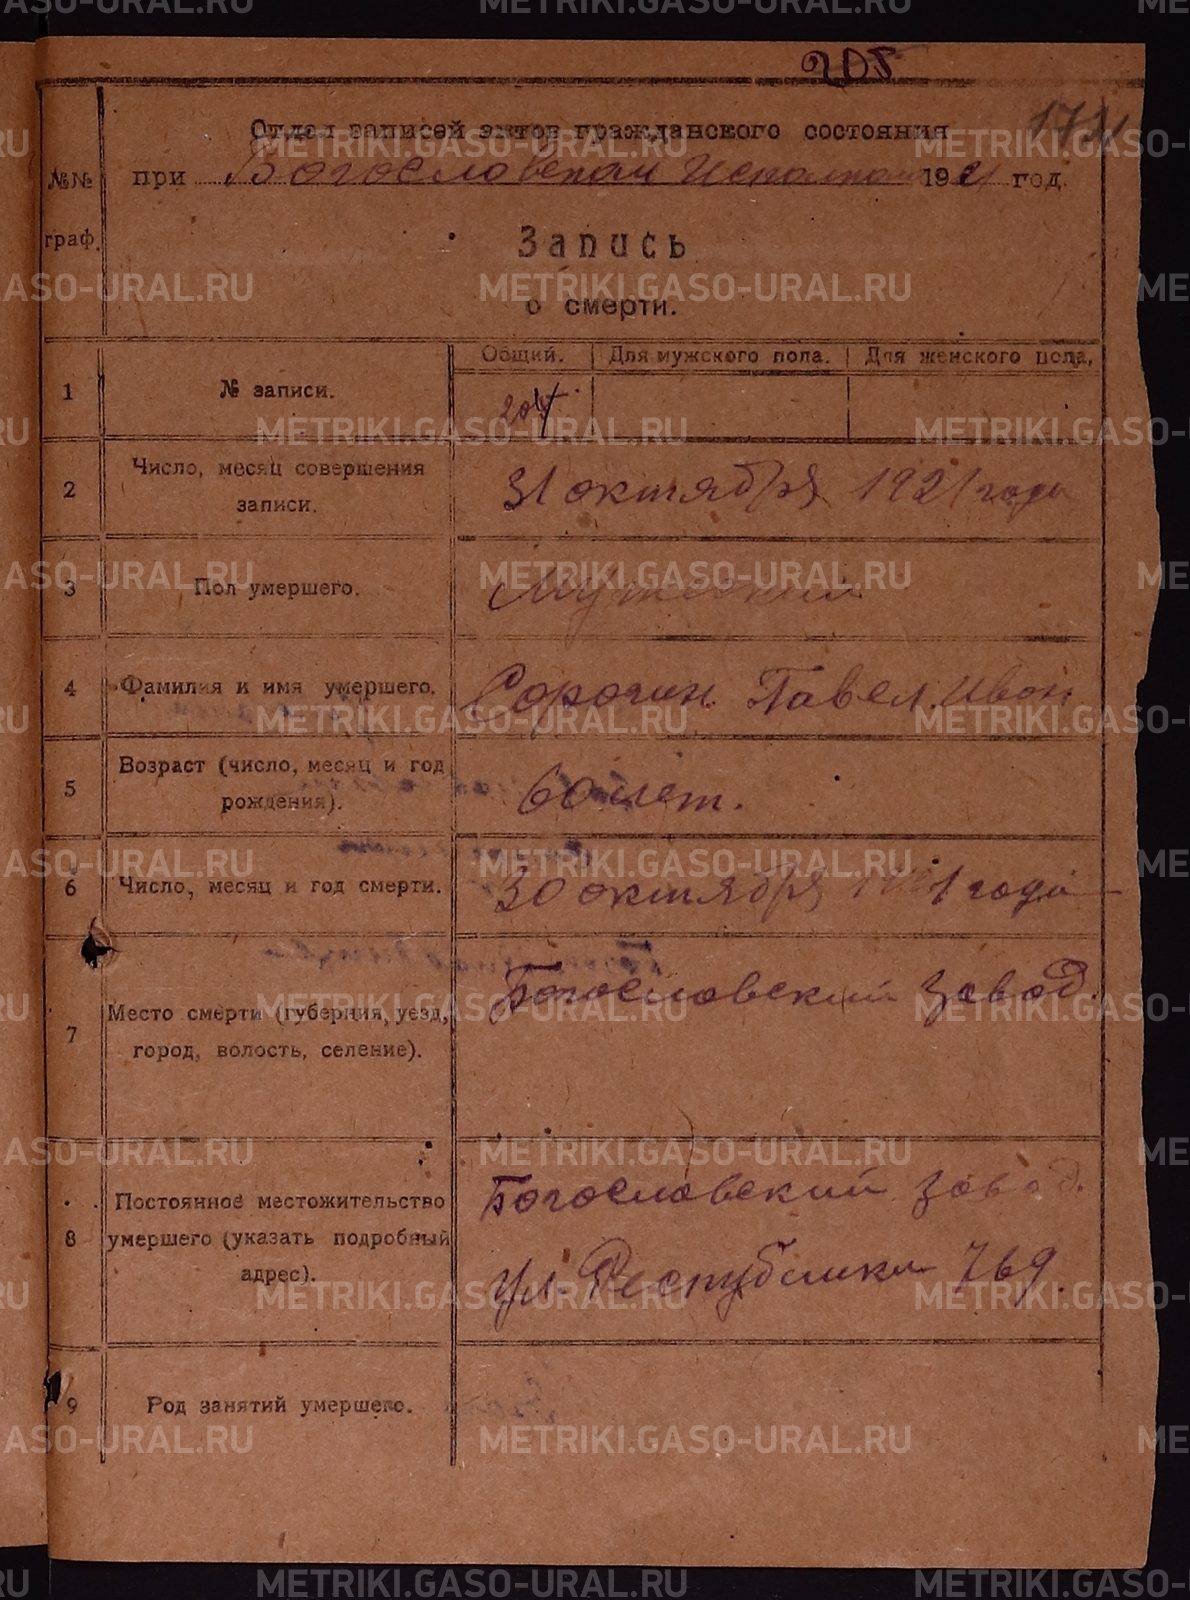 205
Отдел записей актов гражданского состояния
при Богословском Исполкоме 1921 год.
№№ граф.
Запись
о смерти.
Общий. Для мужского пола. Для женского пола,
1 № записи. 204
2 Число, месяц совершения записи. 31 октября 1921 года
3 Пол умершего. Мужеский
4 Фамилия и имя умершего. Сорогин Павел Иван
5 Возраст (число, месяц и год рождения). 60 лет.
6 Число, месяц и год смерти. 30 октября 1921 года
7 Место смерти (губерния, уезд, город, волость, селение). Богословский Завод.
8 Постоянное местожительство умершего (указать подробный адрес). Богословский завод.
ул. Республики
9 Род занятий умершего.
METRIKI.GASO-URAL.RU